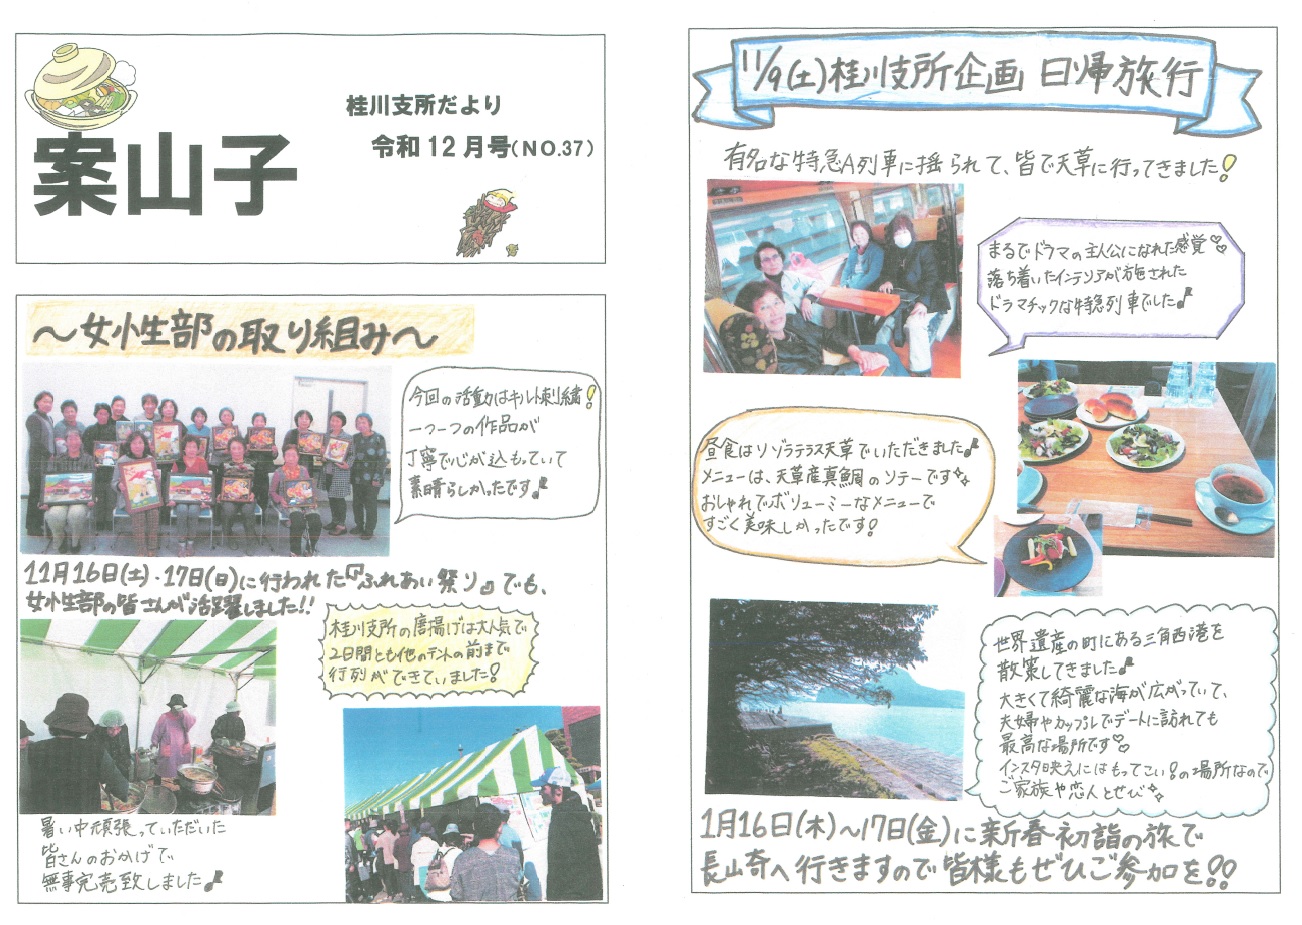 桂川支所だより
令和12月号(NO.37)
案山子
～女性部の取り組み～
今回の活動はキルト刺繍!
一つ一つの作品が
丁寧で心が込もっていて
素晴らしかったです♪
11月16日(土)・17日(日)に行われた『ふれあい祭り』でも、
女性部の皆さんが活躍しました!!
桂川支所の唐揚げは大人気で
2日間とも他のテントの前まで
行列ができていました!
暑い中頑張っていただいた
皆さんのおかげで
無事完売致しました♪
11/9(土)桂川支所企画 日帰旅行
有名な特急A列車に揺られて、皆で天草に行ってきました!
まるでドラマの主人公になれた感覚♡
落ち着いたインテリアが施された
ドラマチックな特急列車でした♪
昼食はリゾラテラス天草でいただきました♪
メニューは、天草産真鯛のソテーです
おしゃれでボリューミーなメニューで
すごく美味しかったです!
世界遺産の町にある三角西港を
散策してきました♪
大きくて綺麗な海が広がっていて、
夫婦やカップルでデートに訪れても
最高な場所です♡
インスタ映えにはもってこい!の場所なので
ご家族や恋人とぜひ
1月16日(木)～17日(金)に新春初詣の旅で
長崎へ行きますので皆様もぜひご参加を!!